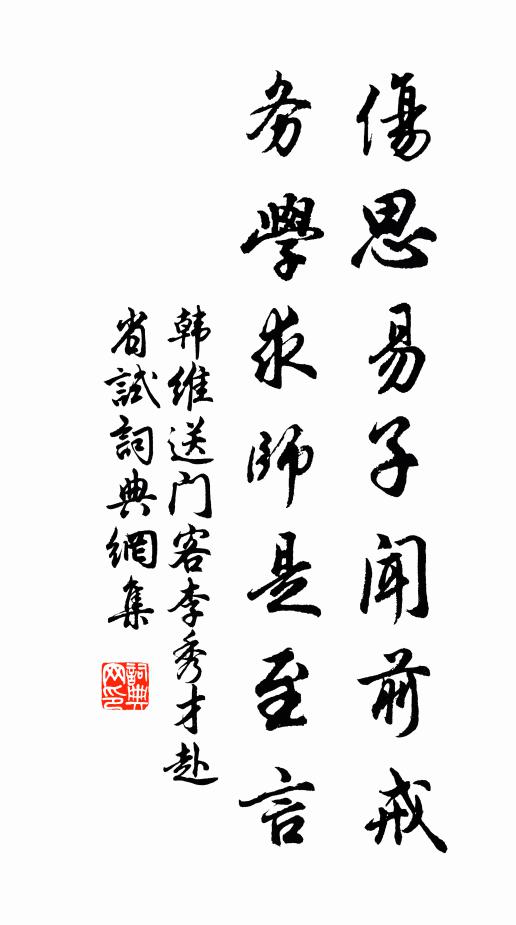 傷思易子聞前戒
务學求師是至言
韩維送门客李秀才赴
省試詞典網集
詞典
网印